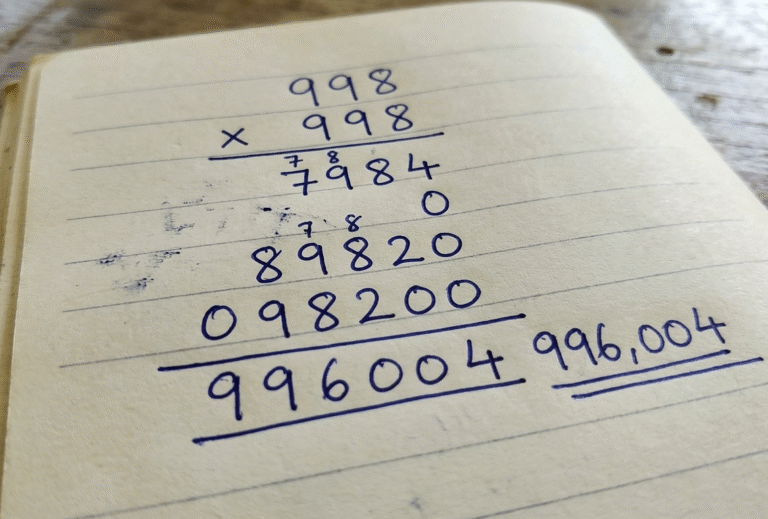 998
× 998
7 8
7984
0
7 8
89820
098200
996004 996,004